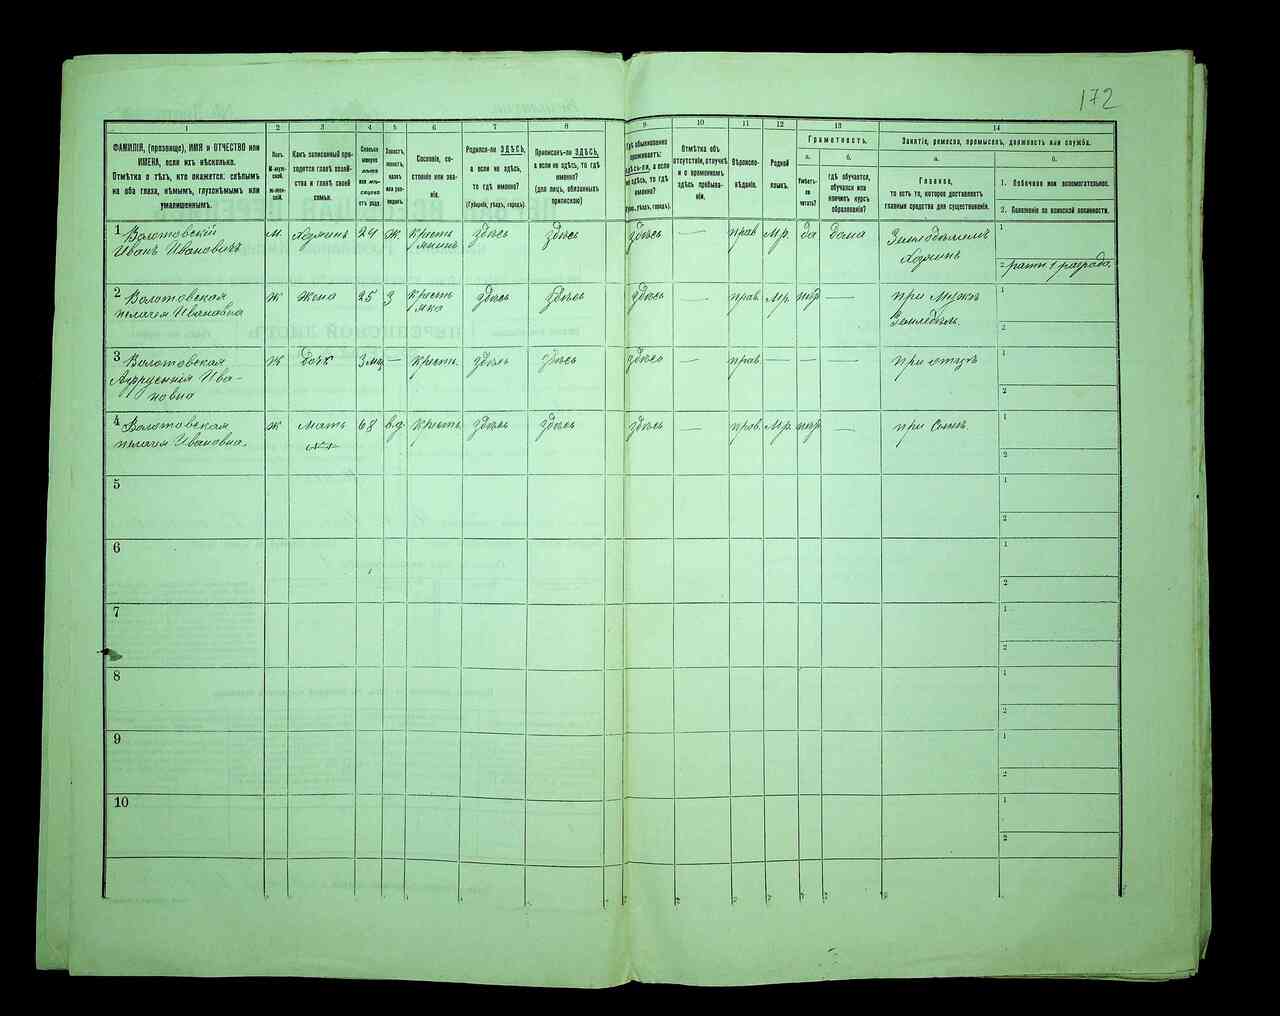 172
1
2
3
4
5
6
7
8
9
10
11
12
13
14
ФАМИЛІЯ, (прозвище), ИМЯ и ОТЧЕСТВО или
ИМЕНА, если ихъ нѣсколько.
Отмѣтка о тѣхъ, кто окажется: слѣпымъ
на оба глаза, нѣмымъ, глухонѣмымъ или
умалишеннымъ.
Полъ.
М-мужской.
Ж-женской.
Какъ записанный приходится главѣ хозяйства и главѣ своей
семьи.
Сколько
минуло
лѣтъ
или мѣсяцевъ
отъ роду.
Холостъ,
женатъ,
вдовъ
или разведенъ.
Сословіе, состояніе или званіе.
Родился-ли ЗДѢСЬ,
а если не здѣсь,
то гдѣ
именно?
(Губернія, уѣздъ, городъ).
Приписанъ-ли ЗДѢСЬ,
а если не здѣсь, то гдѣ
именно?
(для лицъ, обязанныхъ
припискою)
Гдѣ обыкновенно
проживаетъ:
здѣсь-ли, а если
не здѣсь, то гдѣ
именно?
(Губ., уѣздъ, городъ).
Отмѣтка объ
отсутствіи, отлучкѣ
и о временномъ
здѣсь пребываніи.
Вѣроисповѣданіе.
Родной
языкъ.
Грамотность.
а.
Умѣетъ-ли
читать?
б.
гдѣ обучается,
обучался или
кончилъ курсъ
образованія?
Занятіе, ремесло, промыселъ, должность или служба.
а.
Главное,
то есть то, которое доставляетъ
главныя средства для существованія.
б.
1. Побочное или вспомогательное.
2. Положеніе по воинской повинности.
1 Волотовскій
Иванъ Ивановичъ
м. хозяинъ 24 ж. крестьянинъ здѣсь здѣсь здѣсь — прав. Мр. да дома
Земледѣлецъ
хозяинъ
1
2 ратн. 1 разряда.
2 Волотовская
Пелагея Ивановна
ж жена 25 з крестьянка здѣсь здѣсь здѣсь — прав. Мр. нѣт —
при мужѣ
Земледѣл.
1
2
3 Волотовская
Ивановна
ж дочь 3 мц — крестъ. здѣсь здѣсь здѣсь — прав. — — —
при отцѣ
1
2
4 Волотовская
Пелагея Ивановна.
ж мать 68 вд крестъ. здѣсь здѣсь здѣсь — прав. Мр. нѣт —
при сынѣ.
1
2
5
1
2
6
1
2
7
1
2
8
1
2
9
1
2
10
1
2